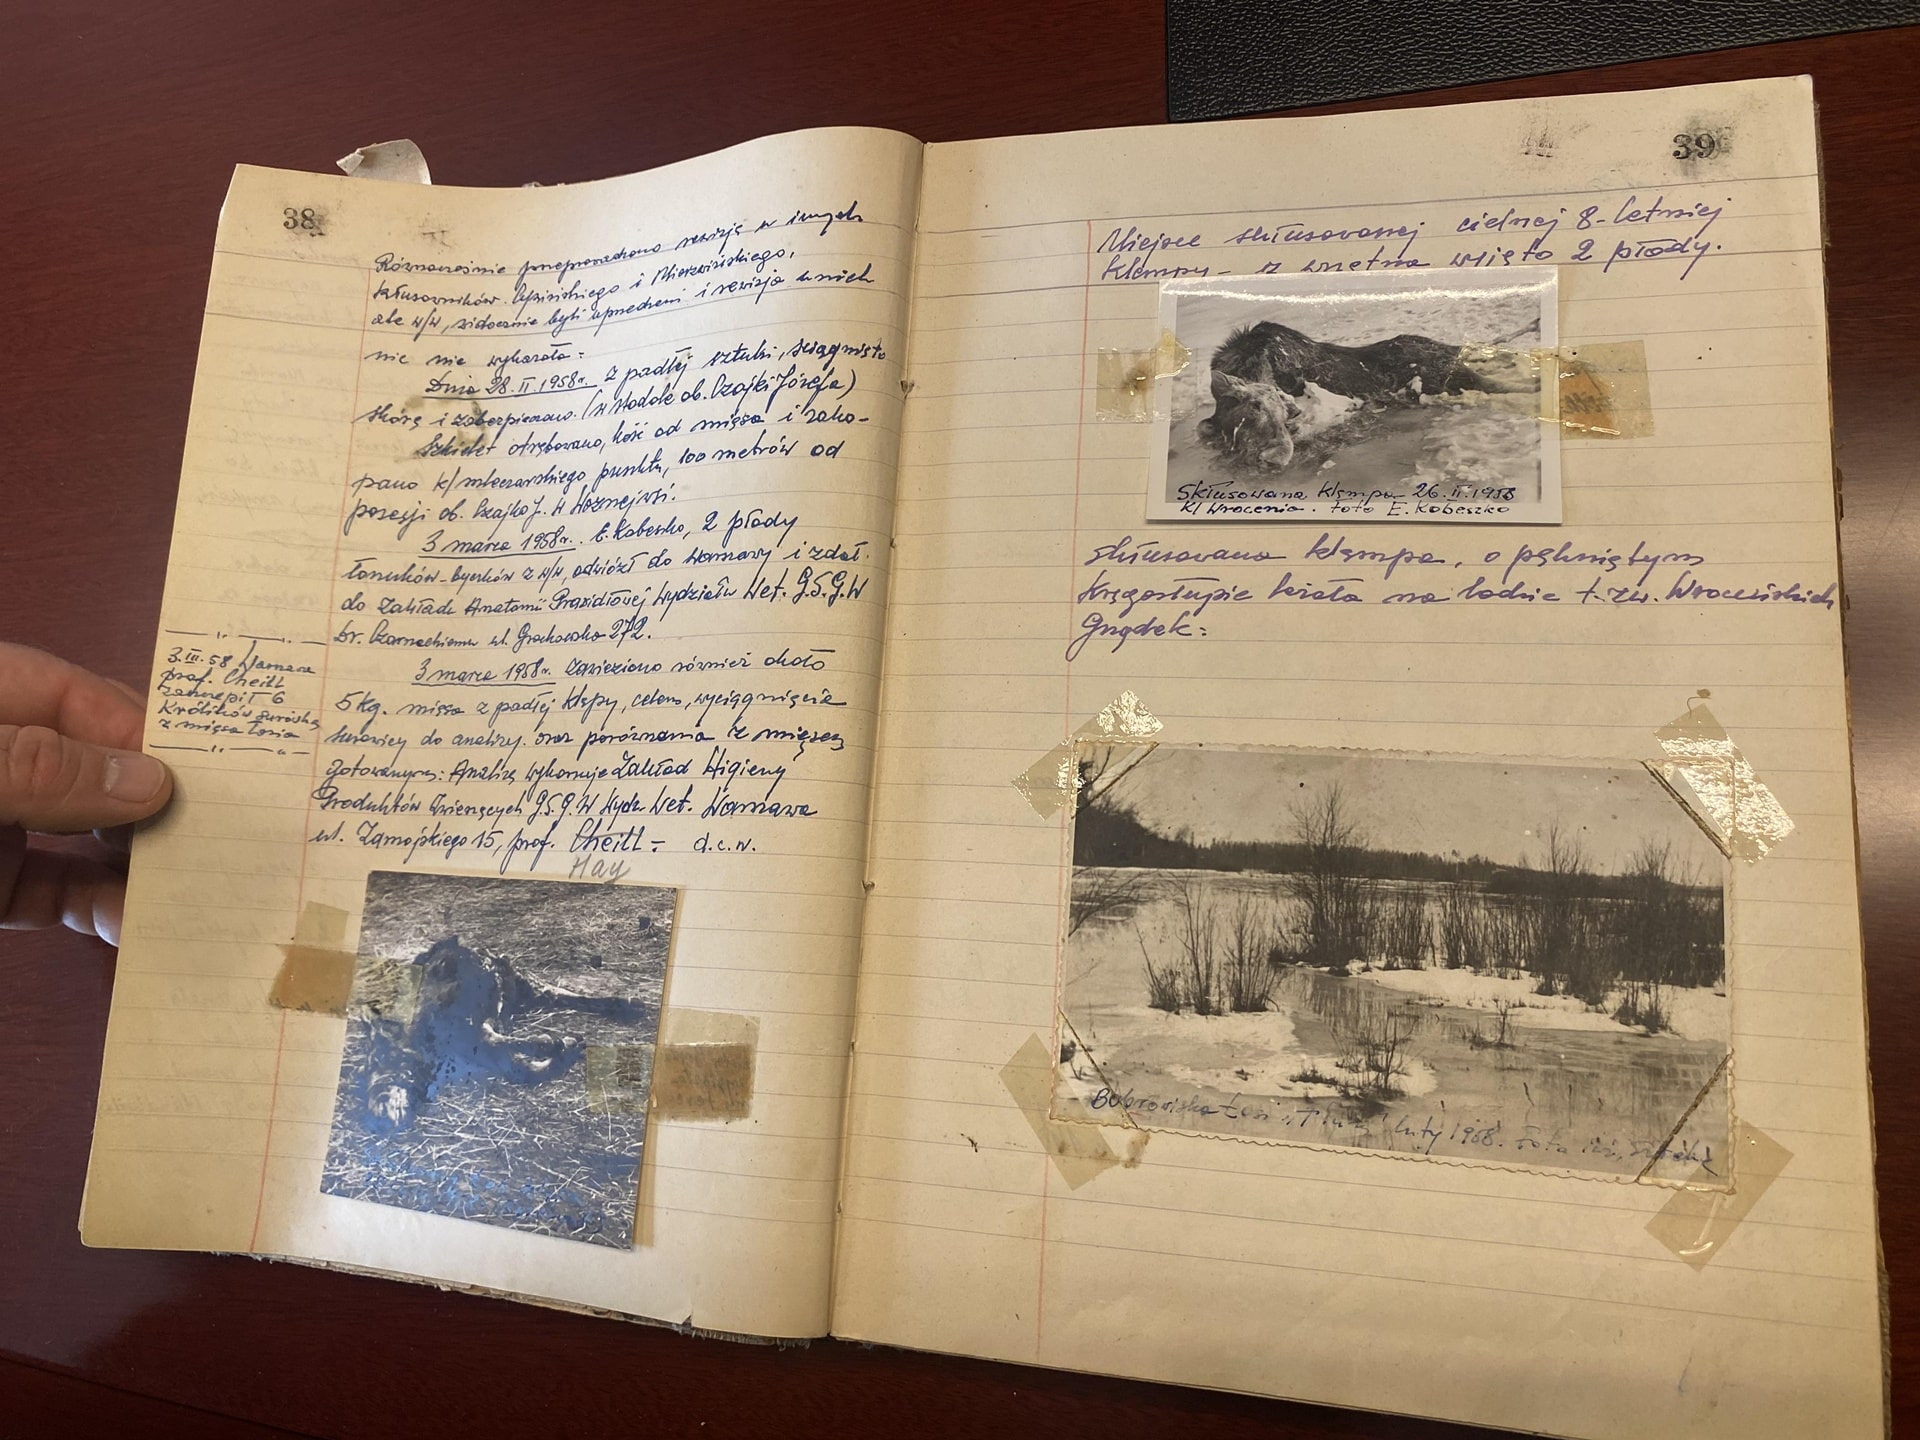 38
Równocześnie przeprowadzono rewizję w innych
kłusowników. i Mierzwińskiego,
ale w/w, widocznie byli uprzedzeni i rewizja u nich
nic nie wykazała:
Dnia 28.II.1958r. z padłej sztuki, ściągnięto
skórę i zabezpieczono. (w stodole ob. Czajki Józefa)
Szkielet otrębowano, kość od mięsa i zako-
pano k/mleczarskiego punktu, 100 metrów od
posesji ob. Czajko J. w Woźnejwsi.
3 marca 1958r. E. Kobeszko, 2 płody
łosuków-byczków z w/w, odwiózł do Warszawy i zdał
do Zakładu Anatomii Prawidłowej Wydziału Wet. G.S.G.W
Dr. Czarneckiemu ul. Grochowska 272.
3 marca 1958r. zawieziono również około
5 kg. mięsa z padłej klępy, celem, wyciągnięcia
surowicy do analizy. oraz porównania z mięsem
gotowanym: Analizę wykonuje Zakład Higieny
Produktów Zwierzęcych G.S.G.W Wydz. Wet. Warszawa
ul. Zamojskiego 15, prof. Cheill - d.c.n.
Hay
3.III.58 Warszawa
prof. Cheill
zaszczepił 6
Królików surowicą
z mięsa łosia
39
Miejsce skłusowanej cielnej 8-letniej
Klempy - z wnętrza wyjęto 2 płody.
Skłusowana klempa 26.II.1958
K/Wrocenia. foto E. Kobeszko
skłusowana klempa, o pękniętym
Kręgosłupie leżała na lodzie t.zw. Wroceńskich
Grądek:
Bobrowiska Łosi luty 1958. foto inż.